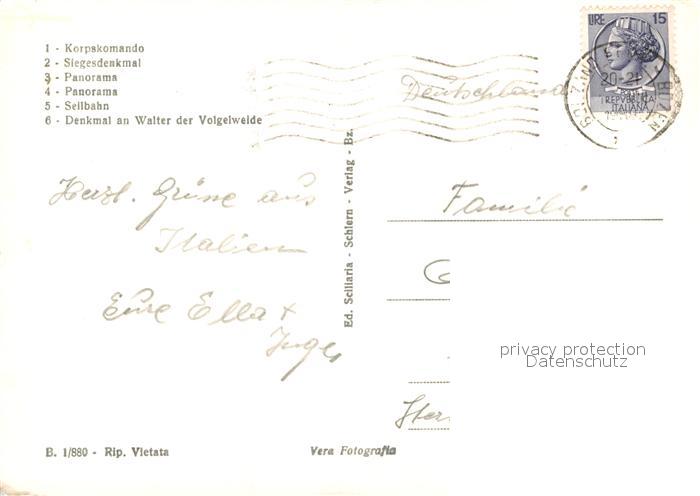 1 - Korpskomando
2 - Siegesdenkmal
3 - Panorama
4 - Panorama
5 - Seilbahn
6 - Denkmal an Walter der Volgelweide
LIRE 15
20-21
REPVBBLICA
ITALIANA
Deutschland
Herzl. Grüsse aus
Italien
Eure Ella +
Inge
Ed. Sciliaria - Schlern - Verlag - Bz.
Familie
G
privacy protection
Datenschutz
Her
B. 1/880 - Rip. Vietata
Vera Fotografia